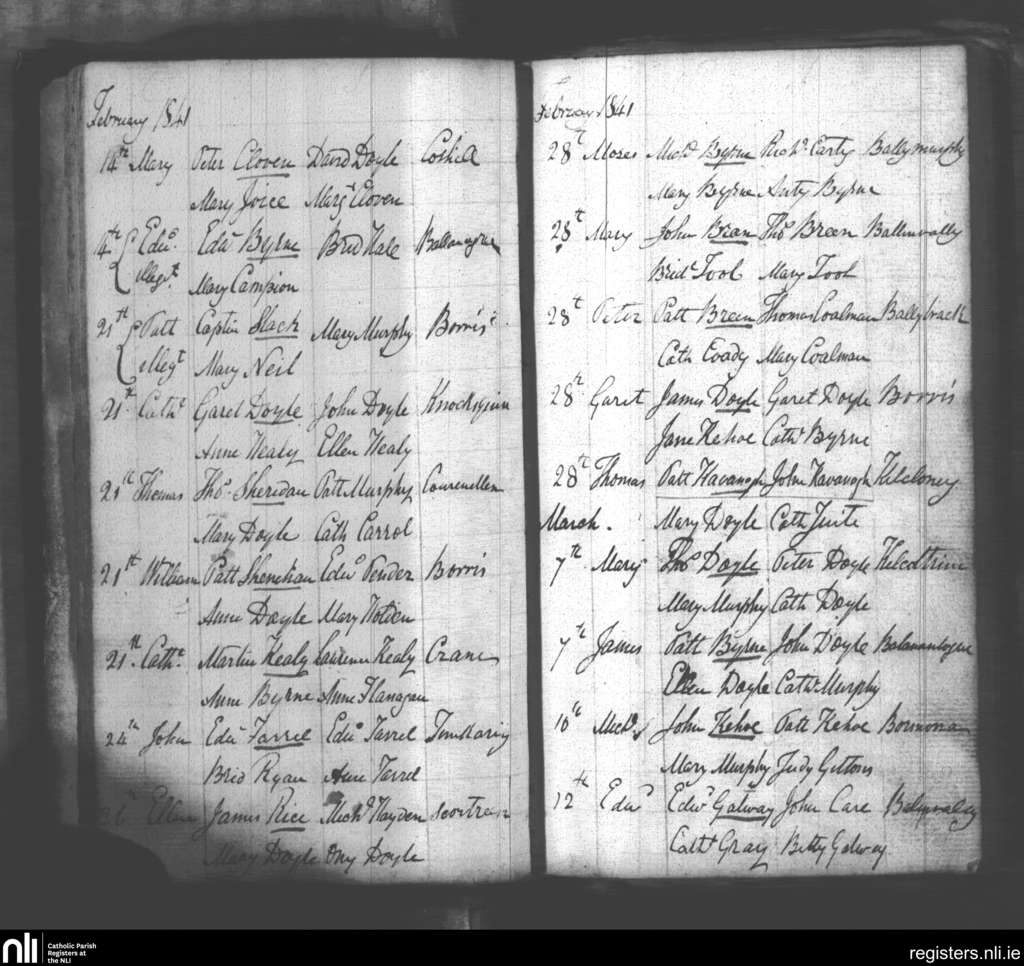 February 1841
14th Mary Peter Cloven David Doyle
Mary Joice Margt Cloven
14th Edwd Edwd Byrne Brid Hale
illegt Mary Campion
21th Patt Captin Slack Mary Murphy Borris
illegt Mary Neil
21th Cathe Garet Doyle John Doyle
Anne Healy Ellen Healy
21th Thomas Thos Sheridan Patt Murphy
Mary Doyle Cath Carrol
21th William Patt Edwd Pender Borris
Anne Doyle Mary Nolan
21th Cathe Martin Healy Laurence Healy Crane
Anne Byrne Anne Flanagan
24th John Edwd Farrel Edwd Farrel
Brid Ryan Anne Farrel
Ellen James Rice Michl Hayden
Mary Doyle Ony Doyle
February 1841
28th Moses Michl Byrne Richd Carty Ballymurphy
Mary Byrne Anty Byrne
28th Mary John Brean Thos Breen Ballinvally
Bridt Tool Mary Tool
28th Peter Patt Breen Thomas Coalman Ballybrack
Cath Coady Mary Coalman
28th Garet James Doyle Garet Doyle Borris
Jane Kehoe Cathe Byrne
28th Thomas Patt Kavanagh John Kavanagh Kilcloney
March. Mary Doyle Cath Tuite
7th Mary Thos Doyle Peter Doyle Kilcoltrim
Mary Murphy Cath Doyle
7th James Patt Byrne John Doyle
Ellen Doyle Cathe Murphy
10th Michl John Kehoe Patt Kehoe Bormona
Mary Murphy Judy Gittons
12th Edwd Edwd Galway John Care
Catht Gray Betty Galway
nli Catholic Parish
Registers at
the NLI
registers.nli.ie